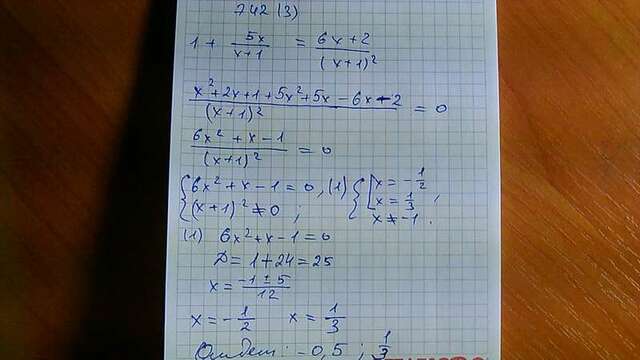 742 (3)
1 + 5x/(x+1) = (6x+2)/(x+1)²
(x²+2x+1+5x²+5x-6x-2)/(x+1)² = 0
(6x²+x-1)/(x+1)² = 0
{6x²+x-1=0, (1) {[x=-1/2
{(x+1)²≠0; [x=1/3,
x≠-1.
(1) 6x²+x-1=0
D=1+24=25
x=(-1±5)/12
x=-1/2 x=1/3
Ответ: -0,5; 1/3